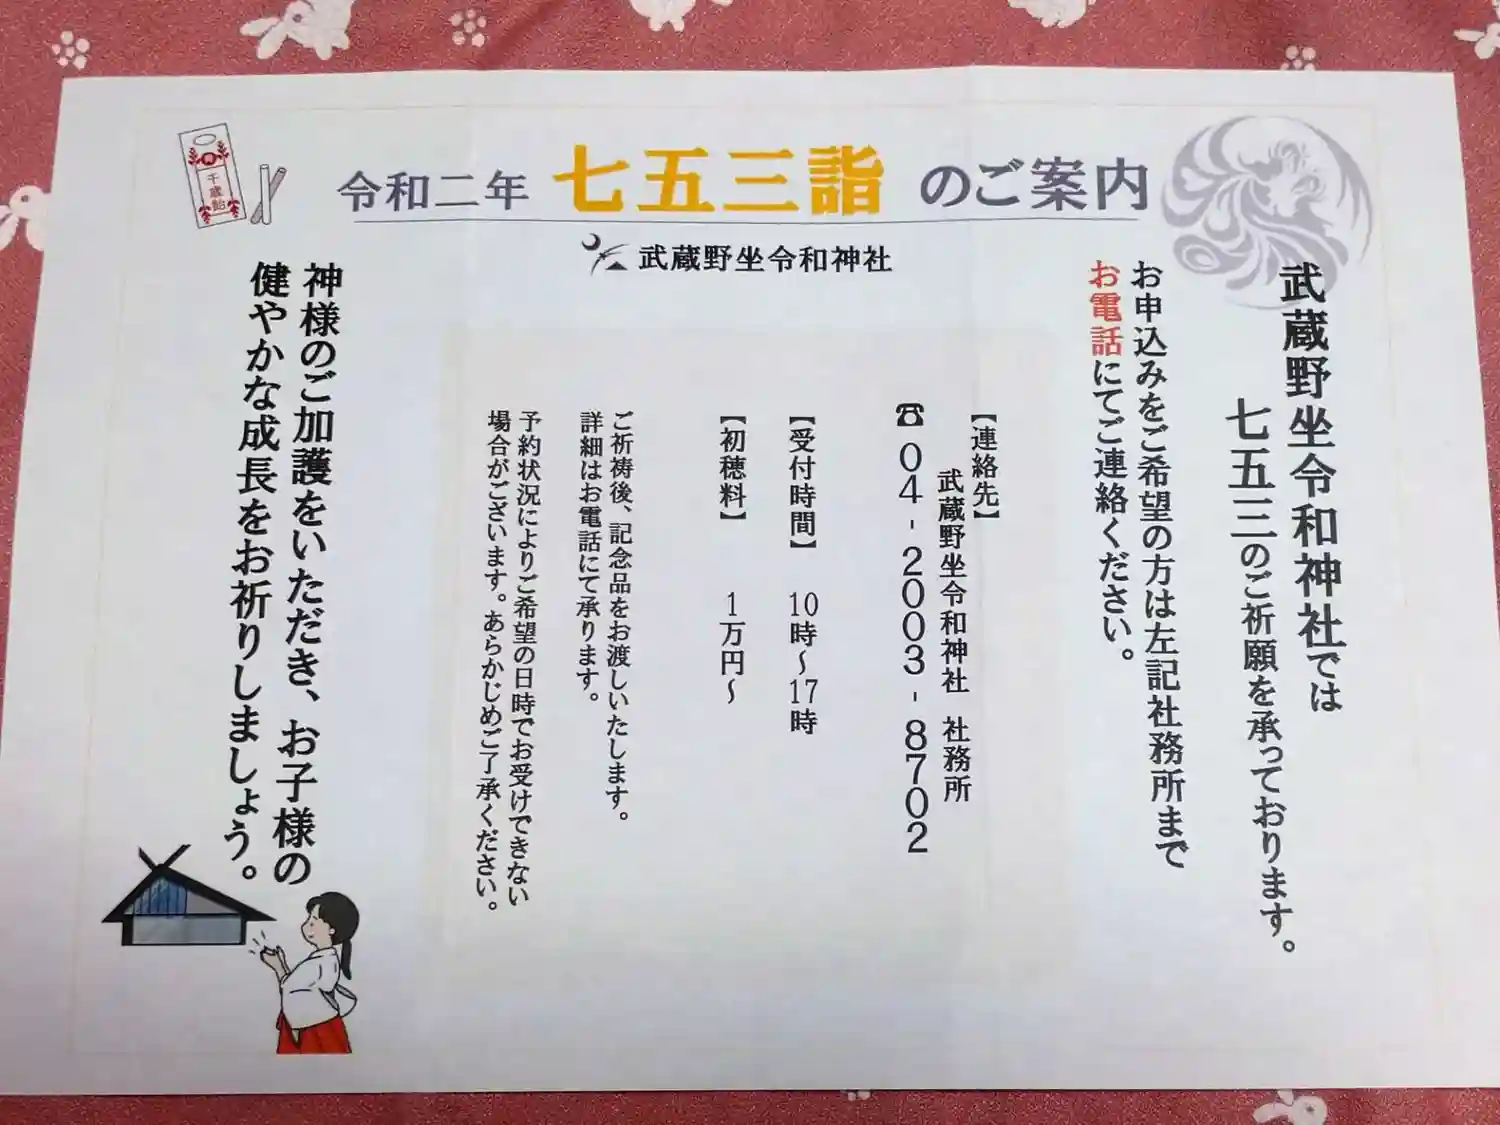 千歳飴
令和二年 七五三詣 のご案内
武蔵野坐令和神社
武蔵野坐令和神社では
七五三のご祈願を承っております。
お申込みをご希望の方は左記社務所まで
お電話にてご連絡ください。
【連絡先】
武蔵野坐令和神社 社務所
☎04-2003-8702
【受付時間】 10時~17時
【初穂料】 1万円~
ご祈祷後、記念品をお渡しいたします。
詳細はお電話にて承ります。
予約状況によりご希望の日時でお受けできない
場合がございます。あらかじめご了承ください。
神様のご加護をいただき、お子様の
健やかな成長をお祈りしましょう。